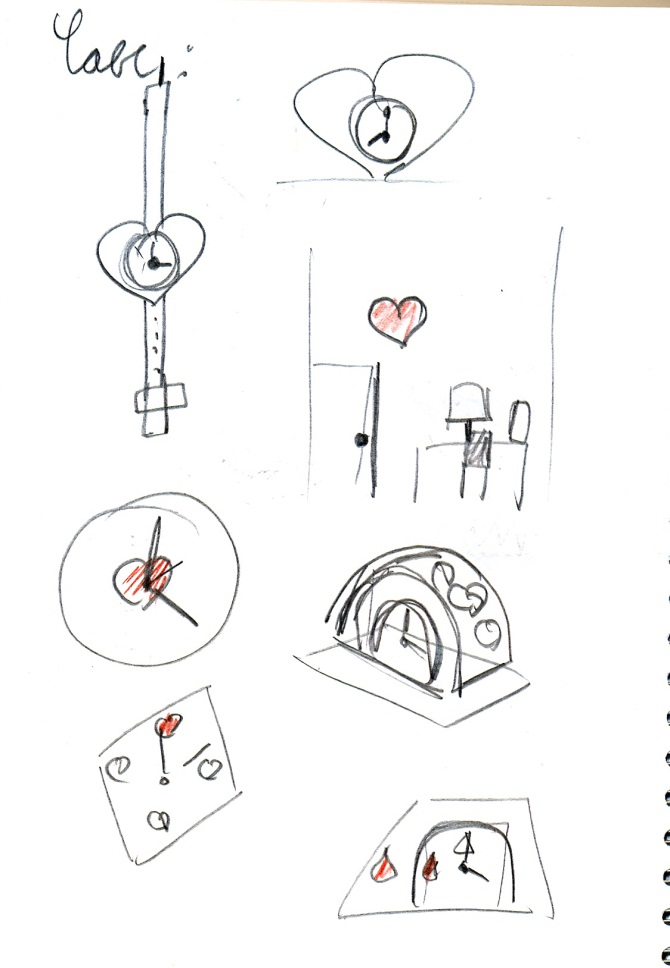 Часы: